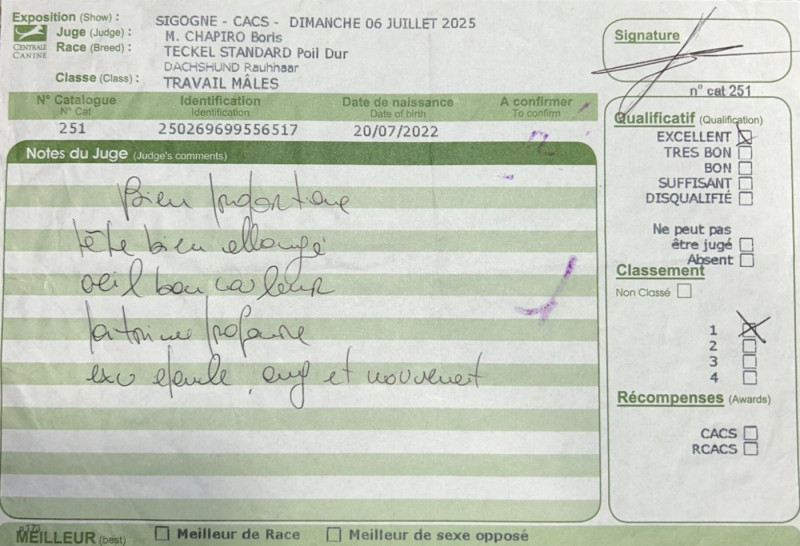 Exposition (Show) : SIGOGNE - CACS - DIMANCHE 06 JUILLET 2025
Juge (Judge) : M. CHAPIRO Boris
Race (Breed) : TECKEL STANDARD Poil Dur
DACHSHUND Rauhhaar
Classe (Class) : TRAVAIL MÂLES
CENTRALE
CANINE
Signature
n° cat 251
N° Catalogue Identification Date de naissance A confirmer
N° Cat Identification Date of birth To confirm
251 250269699556517 20/07/2022
Notes du Juge (Judge's comments)
Bien
tête bien allongé
oeil bon couleur
poitrine
exc épaule, ang et mouvement
Qualificatif (Qualification)
EXCELLENT
TRES BON
BON
SUFFISANT
DISQUALIFIÉ
Ne peut pas
être jugé
Absent
Classement
Non Classé
1
2
3
4
Récompenses (Awards)
CACS
RCACS
MEILLEUR (best) Meilleur de Race Meilleur de sexe opposé